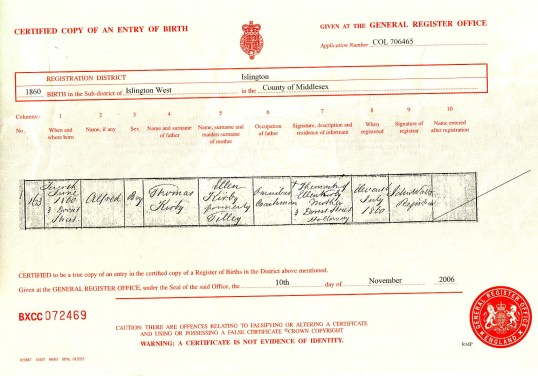 CERTIFIED COPY OF AN ENTRY OF BIRTH
GIVEN AT THE GENERAL REGISTER OFFICE
Application Number COL 706465
REGISTRATION DISTRICT Islington
1860 BIRTH in the Sub-district of Islington West in the County of Middlesex
Columns:- 1 2 3 4 5 6 7 8 9 10
No. When and where born Name, if any Sex Name and surname of father Name, surname and maiden surname of mother Occupation of father Signature, description and residence of informant When registered Signature of registrar Name entered after registration
163 June 1860 3 Dorset Alfred Boy Thomas Kirby Ellen Kirby formerly Tilley Coachman The mark of Ellen Kirby Mother 3 Dorset Street Holloway July 1860 Registrar
CERTIFIED to be a true copy of an entry in the certified copy of a Register of Births in the District above mentioned.
Given at the GENERAL REGISTER OFFICE, under the Seal of the said Office, the 10th day of November 2006
BXCC 072469
CAUTION: THERE ARE OFFENCES RELATING TO FALSIFYING OR ALTERING A CERTIFICATE
AND USING OR POSSESSING A FALSE CERTIFICATE ©CROWN COPYRIGHT
WARNING: A CERTIFICATE IS NOT EVIDENCE OF IDENTITY.
GENERAL REGISTER OFFICE
ENGLAND